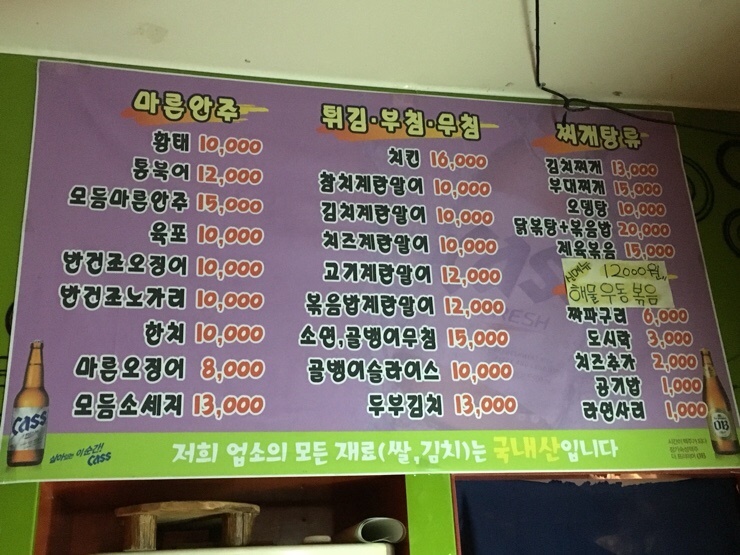 마른안주
황태 10,000
통북어 12,000
모듬마른안주 15,000
육포 10,000
반건조오징어 10,000
반건조노가리 10,000
한치 10,000
마른오징어 8,000
모듬소세지 13,000
튀김·부침·무침
치킨 16,000
참치계란말이 10,000
김치계란말이 10,000
치즈계란말이 10,000
고기계란말이 12,000
볶음밥계란말이 12,000
소면,골뱅이무침 15,000
골뱅이슬라이스 10,000
두부김치 13,000
찌개탕류
김치찌개 13,000
부대찌개 15,000
오뎅탕 10,000
닭볶탕+볶음밥 20,000
제육볶음 15,000
신메뉴 12000원
해물우동볶음
짜파구리 6,000
도시락 3,000
치즈추가 2,000
공기밥 1,000
라면사리 1,000
Cass
FRESH
Cass
살아있는 이순간!
Cass
저희 업소의 모든 재료(쌀,김치)는 국내산입니다
OB